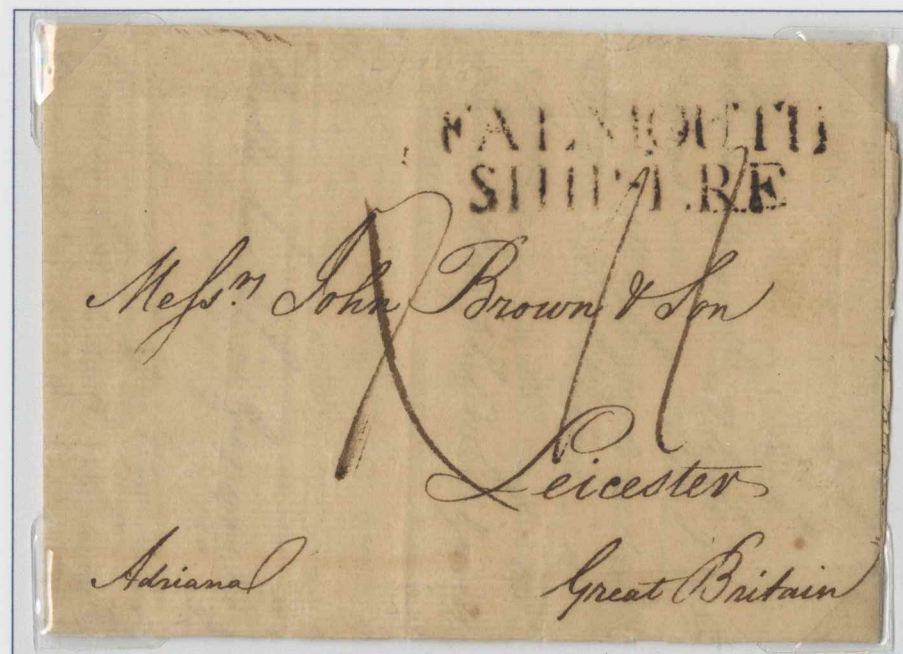 FALMOUTH
SHIP LRE
Messrs John Brown & Son
Leicester
Adriana
Great Britain